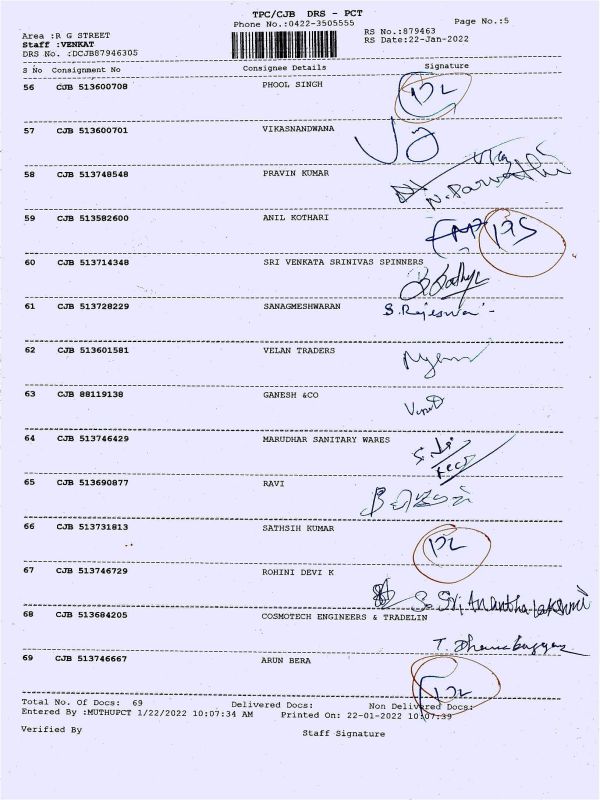 TPC/CJB DRS - PCT
Phone No.:0422-3505555 Page No.:5
Area :R G STREET RS No.:879463
Staff :VENKAT RS Date:22-Jan-2022
DRS No. :DCJB87946305
S No Consignment No Consignee Details Signature
56 CJB 513600708 PHOOL SINGH DL
57 CJB 513600701 VIKASNANDWANA
58 CJB 513748548 PRAVIN KUMAR N. Parvathi
59 CJB 513582600 ANIL KOTHARI
60 CJB 513714348 SRI VENKATA SRINIVAS SPINNERS
61 CJB 513728229 SANAGMESHWARAN S. Rajeswari
62 CJB 513601581 VELAN TRADERS
63 CJB 88119138 GANESH &CO
64 CJB 513746429 MARUDHAR SANITARY WARES
65 CJB 513690877 RAVI
66 CJB 513731813 SATHSIH KUMAR DL
67 CJB 513746729 ROHINI DEVI K
68 CJB 513684205 COSMOTECH ENGINEERS & TRADELIN
69 CJB 513746667 ARUN BERA DL
Total No. Of Docs: 69 Delivered Docs: Non Delivered Docs:
Entered By :MUTHUPCT 1/22/2022 10:07:34 AM Printed On: 22-01-2022 10:07:39
Verified By Staff Signature